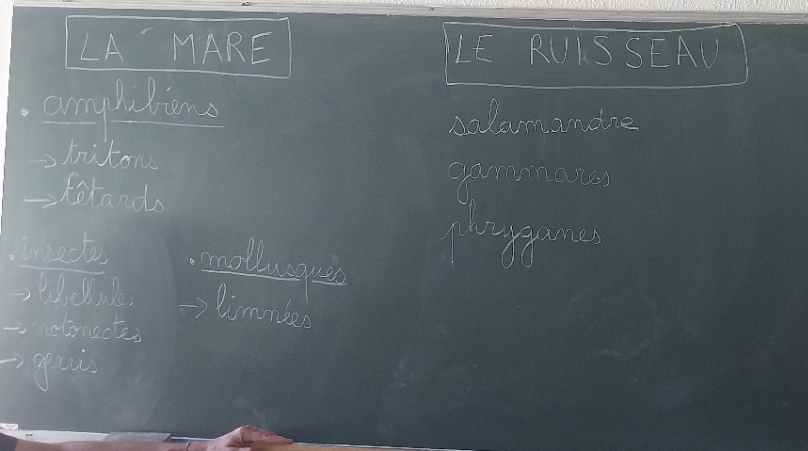 LA MARE
. amphibiens
→ tritons
→ têtards
. insectes
→ libellules
→ notonectes
→ gerris
. mollusques
→ limnées
LE RUISSEAU
salamandre
gammares
phryganes